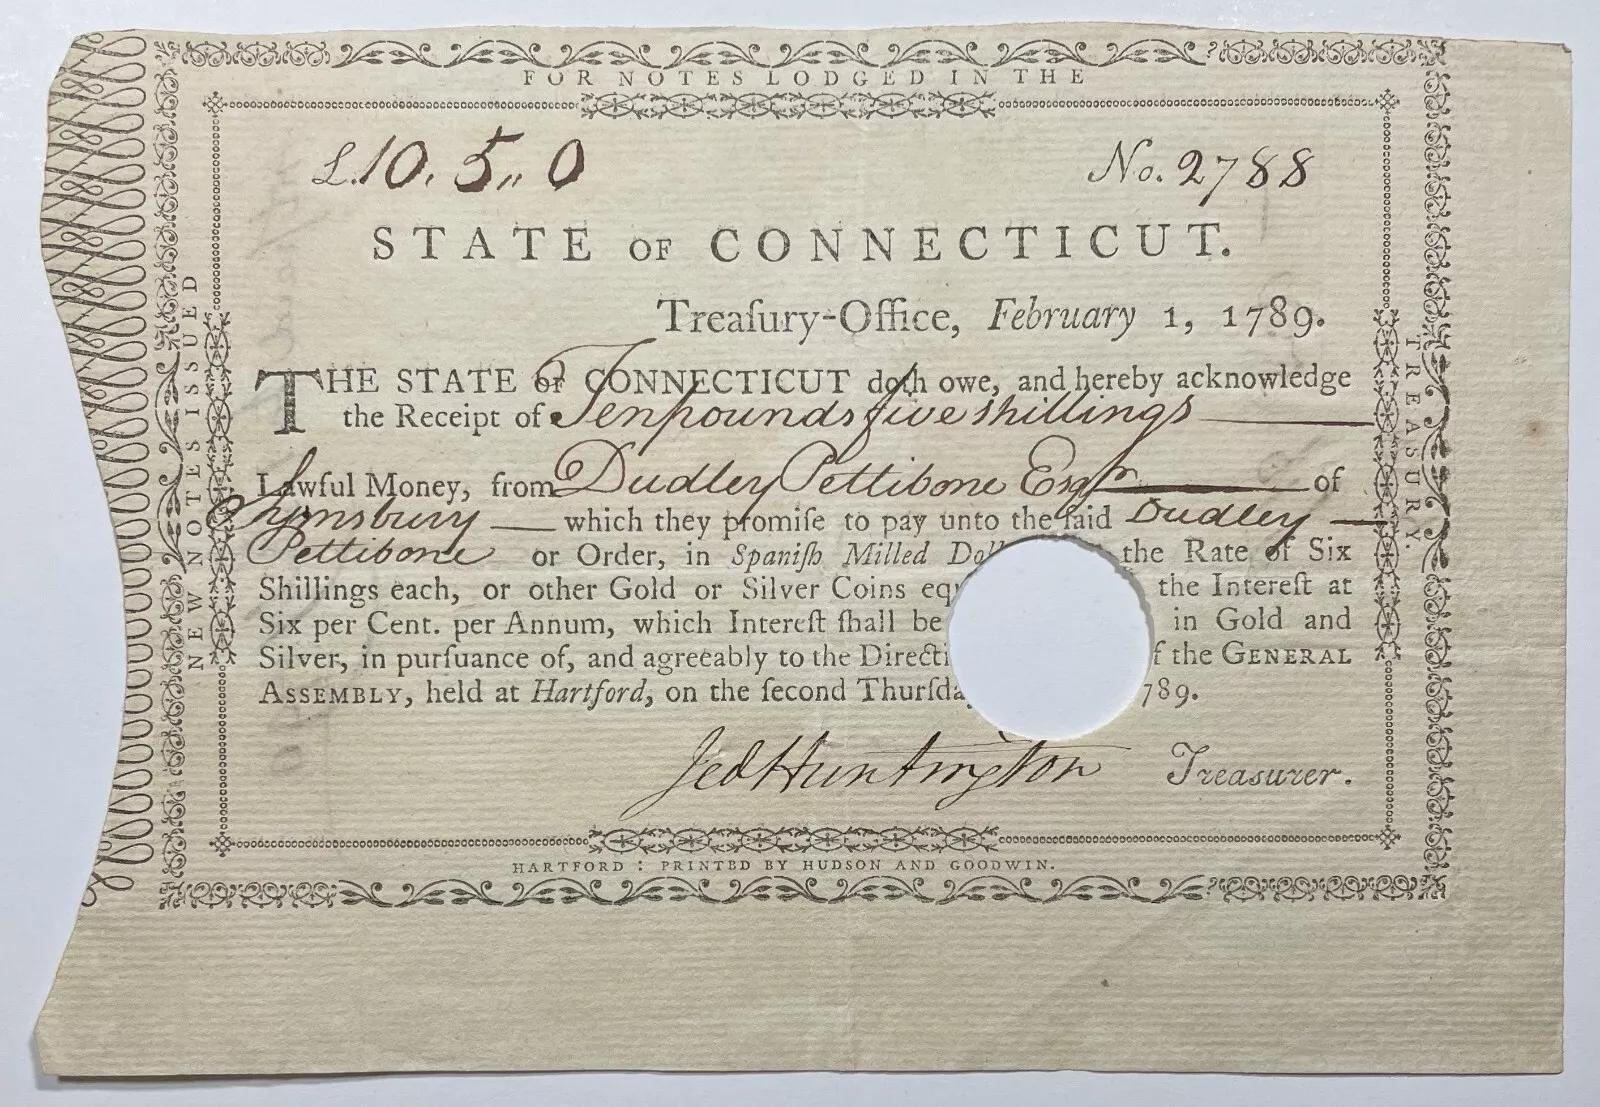 FOR NOTES LODGED IN THE
£.10. 5,, 0 No. 2788
STATE OF CONNECTICUT.
Treaſury-Office, February 1, 1789.
THE STATE OF CONNECTICUT doth owe, and hereby acknowledge
the Receipt of Ten pounds five shillings
Lawful Money, from Dudley Pettibone Esqr of
Symsbury which they promiſe to pay unto the ſaid Dudley
Pettibone or Order, in Spaniſh Milled Doll the Rate of Six
Shillings each, or other Gold or Silver Coins equ the Intereſt at
Six per Cent. per Annum, which Intereſt ſhall be in Gold and
Silver, in purſuance of, and agreeably to the Directi f the GENERAL
ASSEMBLY, held at Hartford, on the ſecond Thurſda 789.
Jed Huntington Treasurer.
HARTFORD : PRINTED BY HUDSON AND GOODWIN.
NEW NOTES ISSUED
TREASURY.